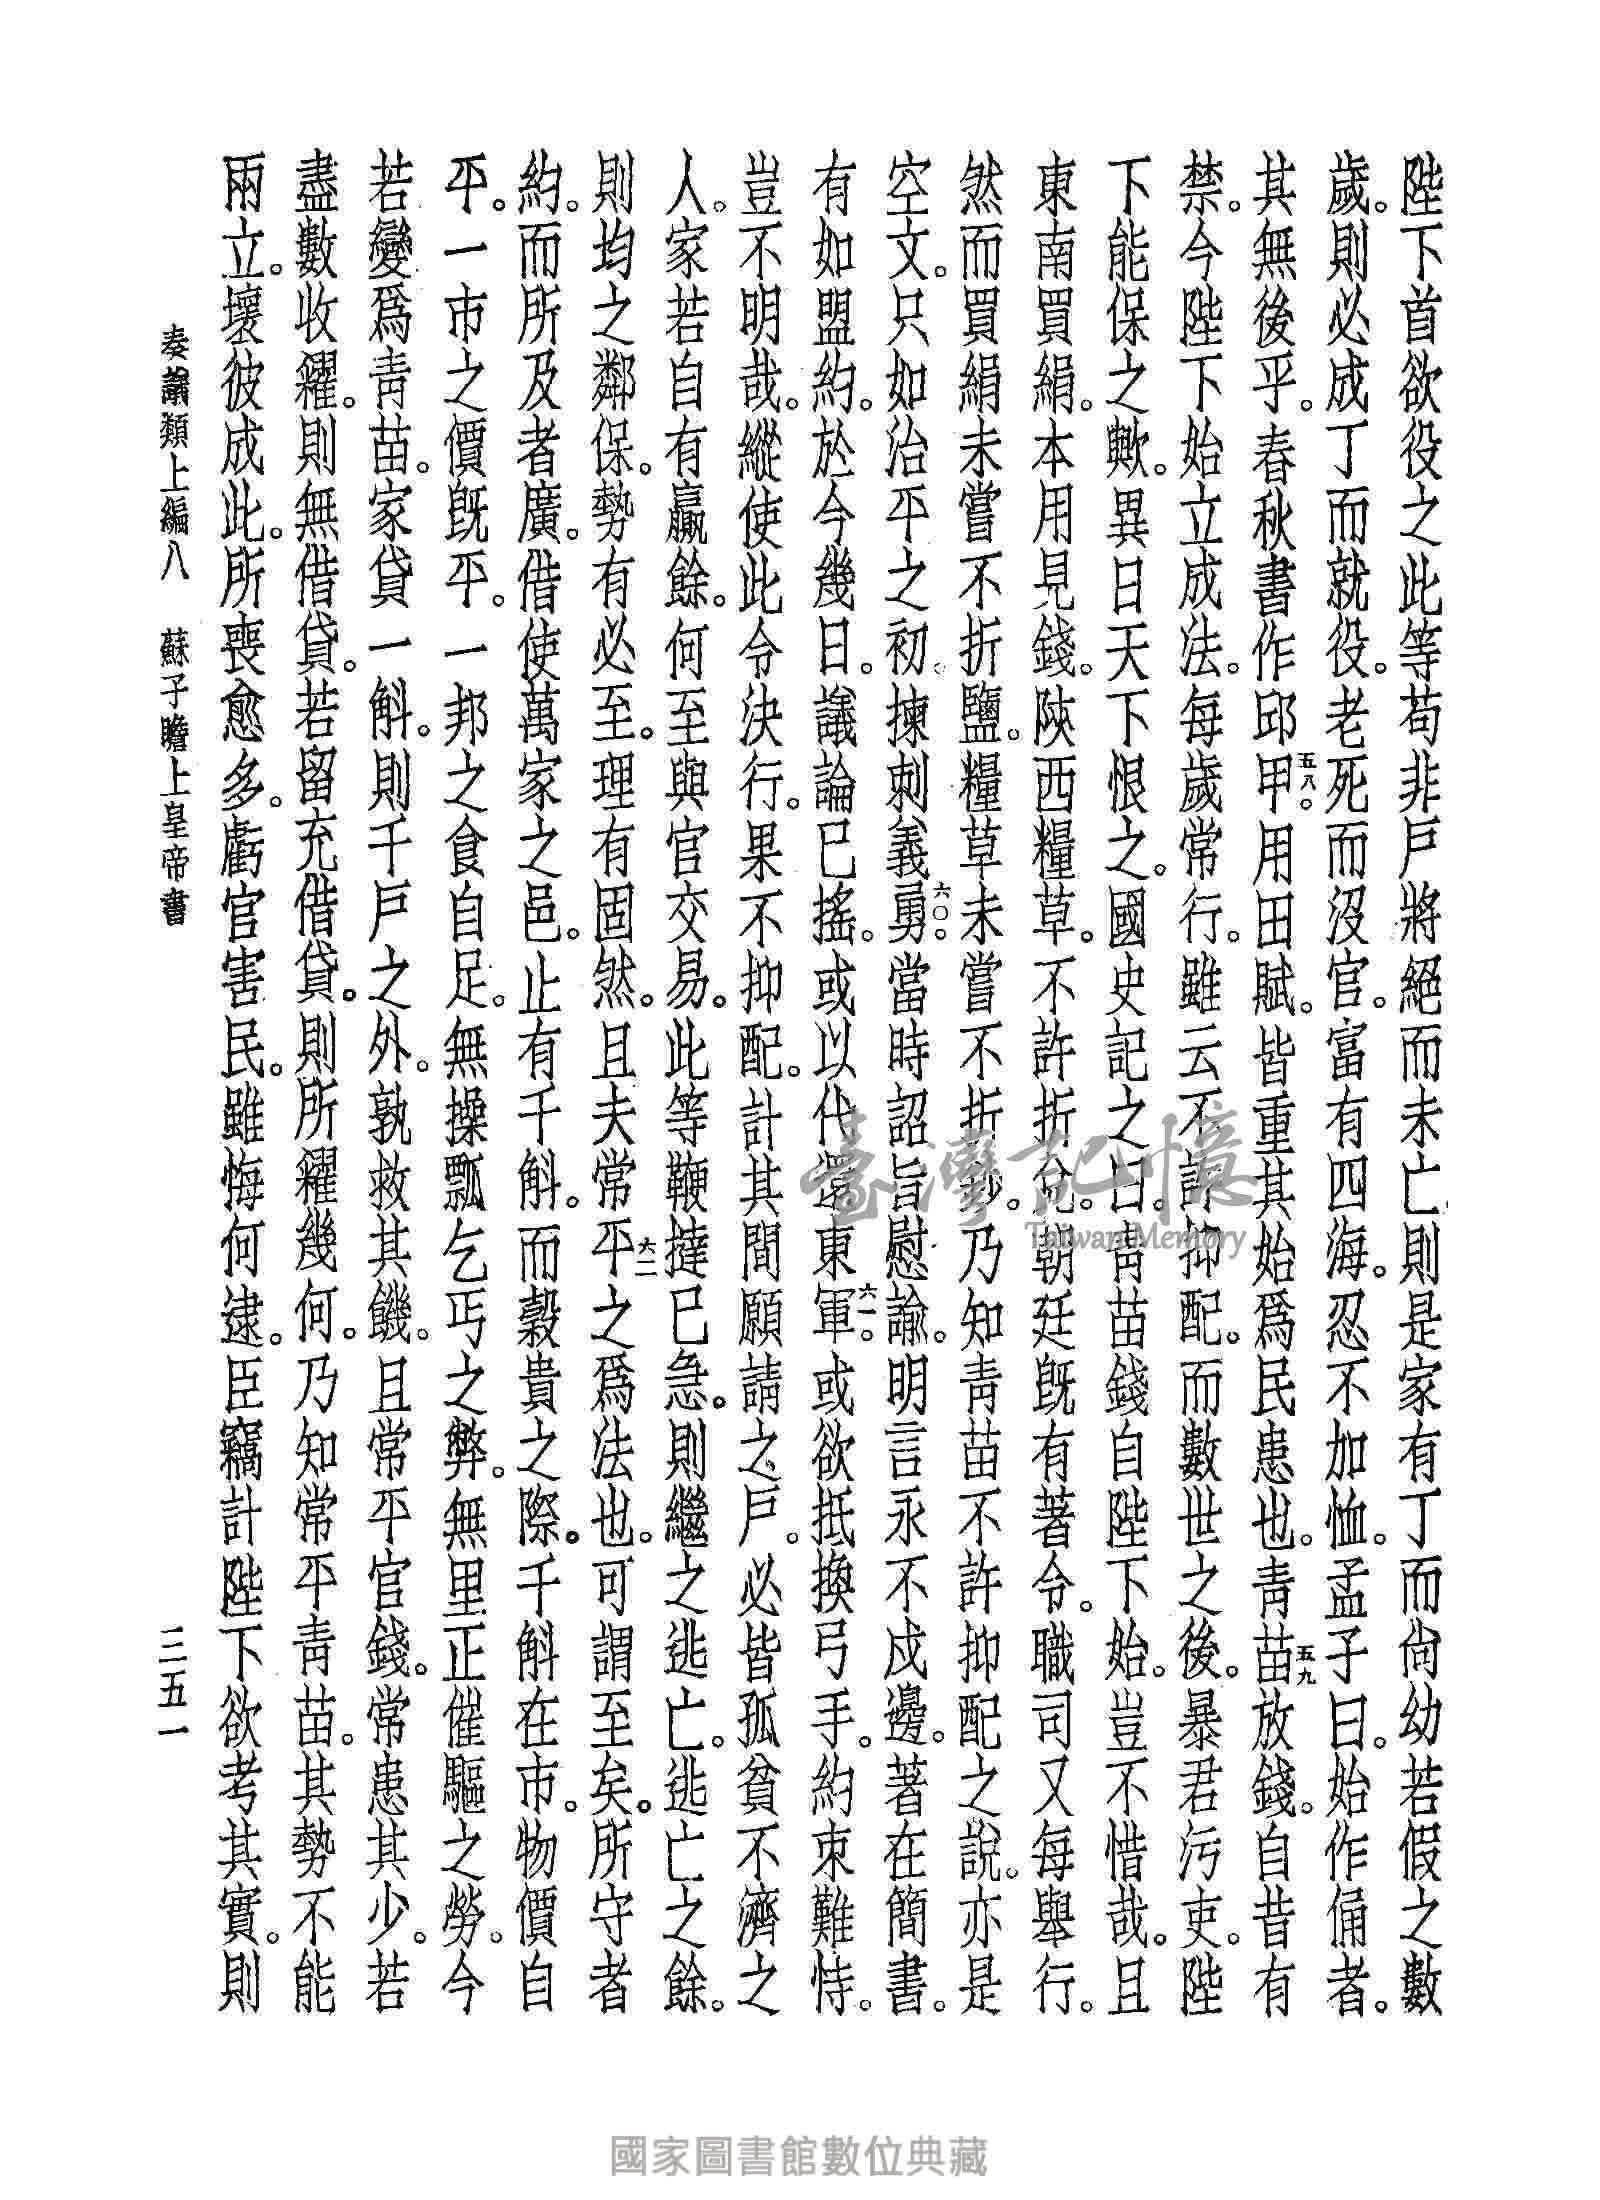 陛下首欲役之此等苟非戶將絕而未亡則是家有丁而尙幼若假之數
歲。則必成丁而就役。老死而沒官。富有四海。忍不加恤。孟子曰。始作俑者。
其無後乎。春秋書作邱甲五八。用田賦。皆重其始爲民患也。靑苗五九放錢。自昔有
禁。今陛下始立成法。每歲常行。雖云不許抑配。而數世之後。暴君污吏。陛
下能保之歟。異日天下恨之。國史記之曰。靑苗錢自陛下始。豈不惜哉。且
東南買絹。本用見錢。陝西糧草。不許折兌。朝廷旣有著令。職司又每舉行。
然而買絹未嘗不折鹽。糧草未嘗不折鈔。乃知靑苗不許抑配之說。亦是
空文。只如治平之初。揀刺義勇六〇。當時詔旨慰諭。明言永不戍邊。著在簡書。
有如盟約。於今幾日。議論已搖。或以代還東軍六一。或欲抵換弓手。約束難恃。
豈不明哉。縱使此令決行。果不抑配。計其間願請之戶。必皆孤貧不濟之
人。家若自有贏餘。何至與官交易。此等鞭撻已急。則繼之逃亡。逃亡之餘。
則均之鄰保。勢有必至。理有固然。且夫常平六二之爲法也。可謂至矣。所守者
約。而所及者廣。借使萬家之邑。止有千斛。而穀貴之際。千斛在市。物價自
平。一市之價旣平。一邦之食自足。無操瓢乞丐之弊。無里正催驅之勞。今
若變爲靑苗。家貸一斛。則千戶之外。孰救其饑。且常平官錢。常患其少。若
盡數收糴。則無借貸。若留充借貸。則所糴幾何。乃知常平靑苗。其勢不能
兩立。壞彼成此。所喪愈多。虧官害民。雖悔何逮。臣竊計陛下欲考其實。則
奏議類上編八　蘇子瞻上皇帝書　二五一
臺灣記憶
Taiwan Memory
國家圖書館數位典藏